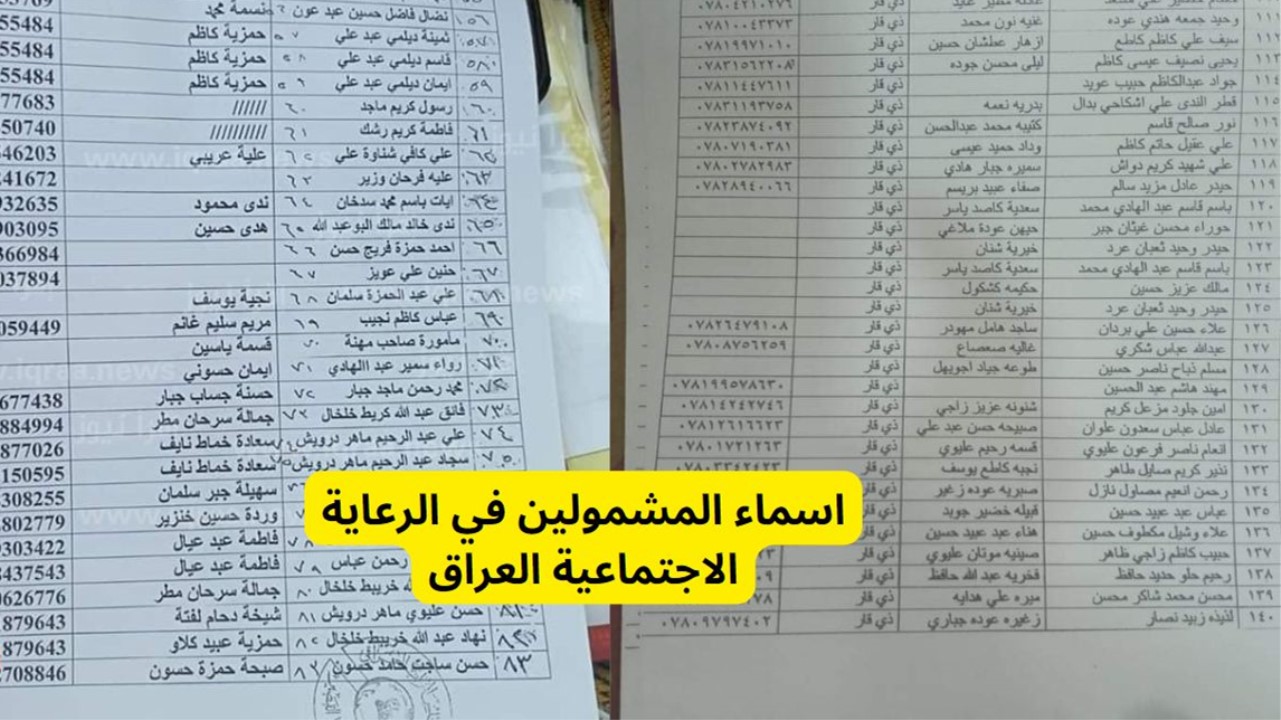 ١١١ وحيد جمعه هندي عوده غنيه نون محمد ذي قار ٠٧٨١٠٠٤٣٣٧٣
سيف علي كاظم كاطع ازهار عطشان حسين ذي قار ٠٧٨١٩٩٧١٠١٠
يحيى نصيف عيسى كاظم ليلى محسن جوده ذي قار ٠٧٨٣١٥٦٢٢٠٨
جواد عبدالكاظم حبيب عويد ذي قار ٠٧٨١١٤٤٧٦١١
١١٥ قطر الندى علي اشكاحي بدال بدريه نعمه ذي قار ٠٧٨٣١١٩٣٧٥٨
١١٦ نور صالح قاسم كتيبه محمد عبدالحسن ذي قار ٠٧٨٢٣٨٧٤٠٩٢
١١٧ علي عقيل حاتم كاظم وداد حميد عيسى ذي قار ٠٧٨٠٧١٩٠٣٨١
١١٨ علي شهيد كريم دواش سميره جبار هادي ذي قار ٠٧٨٠٢٧٨٢٩٨٣
١١٩ حيدر عادل مزيد سالم صفاء عبيد بريسم ذي قار ٠٧٨٢٨٩٤٠٠٦٦
١٢٠ باسم قاسم عبد الهادي محمد سعدية كاصد ياسر ذي قار
١٢١ حوراء محسن غيثان جبر جيهن عودة ملاغي ذي قار
١٢٢ حيدر وحيد ثعبان عرد خيرية شنان ذي قار
١٢٣ باسم قاسم عبد الهادي محمد سعدية كاصد ياسر ذي قار
١٢٤ مالك عزيز حسين حكيمه كشكول ذي قار
١٢٥ حيدر وحيد ثعبان عرد خيرية شنان ذي قار
١٢٦ علاء حسين علي بردان ساجد هامل مهودر ذي قار ٠٧٨٢٦٤٧٩١٠٨
١٢٧ عبدالله عباس شكري غاليه صعصاع ذي قار ٠٧٨٠٨٧٥٦٢٥٩
١٢٨ مسلم نباح ناصر حسين طوعه جياد اجويهل ذي قار
١٢٩ مهند هاشم عبد الحسين ذي قار ٠٧٨١٩٩٥٧٨٦٣٠
١٣٠ امين جلود مزعل كريم شنونه عزيز زاجي ذي قار ٠٧٨١٤٢٤٢٧٤٦
١٣١ عادل عباس سعدون علوان صبيحه حسن عبد علي ذي قار ٠٧٨١٢٦١٦٦٢٣
١٣٢ انعام ناصر فرعون عليوي قسمه رحيم عليوي ذي قار ٠٧٨٠١٧٢١٢٦٣
١٣٣ نذير كريم صايل طاهر نجبه كاطع يوسف ذي قار ٠٧٨٠٣٣٤٢٤٢٣
١٣٤ رحمن انعيم مصاول نازل صبريه عوده زغير ذي قار
١٣٥ عباس عبد عبيد حسين فيله خضير جويد ذي قار
١٣٦ علاء وشيل مكطوف حسين هناء عبد عبيد حسين ذي قار
١٣٧ حبيب كاظم زاجي ظاهر صينيه موتان عليوي ذي قار
١٣٨ رحيم حلو حديد حافظ فخريه عبد الله حافظ ذي قار
١٣٩ محسن محمد شاكر محسن ميره علي هدايه ذي قار
١٤٠ لذيذه زبيد نصار زغيره عوده جباري ذي قار ٠٧٨٠٩٧٩٧٤٠٢
٥٦ نضال فاضل حسين عبد عون نسمة محمد
ثمينة ديلمي عبد علي حمزية كاظم 55484
٥٨ قاسم ديلمي عبد علي حمزية كاظم 55484
٥٩ ايمان ديلمي عبد علي حمزية كاظم 55484
٦٠ رسول كريم ماجد ////// 77683
٦١ فاطمة كريم رشك ////////// 50740
علي كافي شناوة علي علية عريبي 546203
٦٣ عليه فرحان وزير 241672
٦٤ ايات باسم محمد سدخان ندى محمود 932635
٦٥ ندى خالد مالك البوعبد الله هدى حسين 903095
٦٦ احمد حمزة فريج حسن 366984
٦٧ حنين علي عويز 037894
علي عبد الحمزة سلمان نجية يوسف
٦٩ عباس كاظم نجيب مريم سليم غانم 059449
٧٠ مأمورة صاحب مهنة قسمة ياسين
٧١ رواء سمير عبد االهادي ايمان حسوني
محمد رحمن ماجد جبار حسنة جساب جبار 677438
٧٣ فائق عبد الله كريط خلخال جمالة سرحان مطر 884994
٧٤ علي عبد الرحيم ماهر درويش سعادة خماط نايف 877026
٧٥ سجاد عبد الرحيم ماهر درويش سعادة خماط نايف 150595
سهيلة جبر سلمان 308255
وردة حسين خنزير 802779
فاطمة عبد عيال 9303422
رحمن عباس فاطمة عبد عيال 8437543
خريبط خلخال ٨٠ جمالة سرحان مطر 0626776
٨١ حسن عليوي ماهر درويش شيخة دحام لفتة 1879643
نهاد عبد الله خريبط خلخال حمزية عبيد كلاو 1879643
٨٣ حسن ساجت حامد حسون صبحة حمزة حسون 2708846
www.iqraa.news
اسماء المشمولين في الرعاية
الاجتماعية العراق